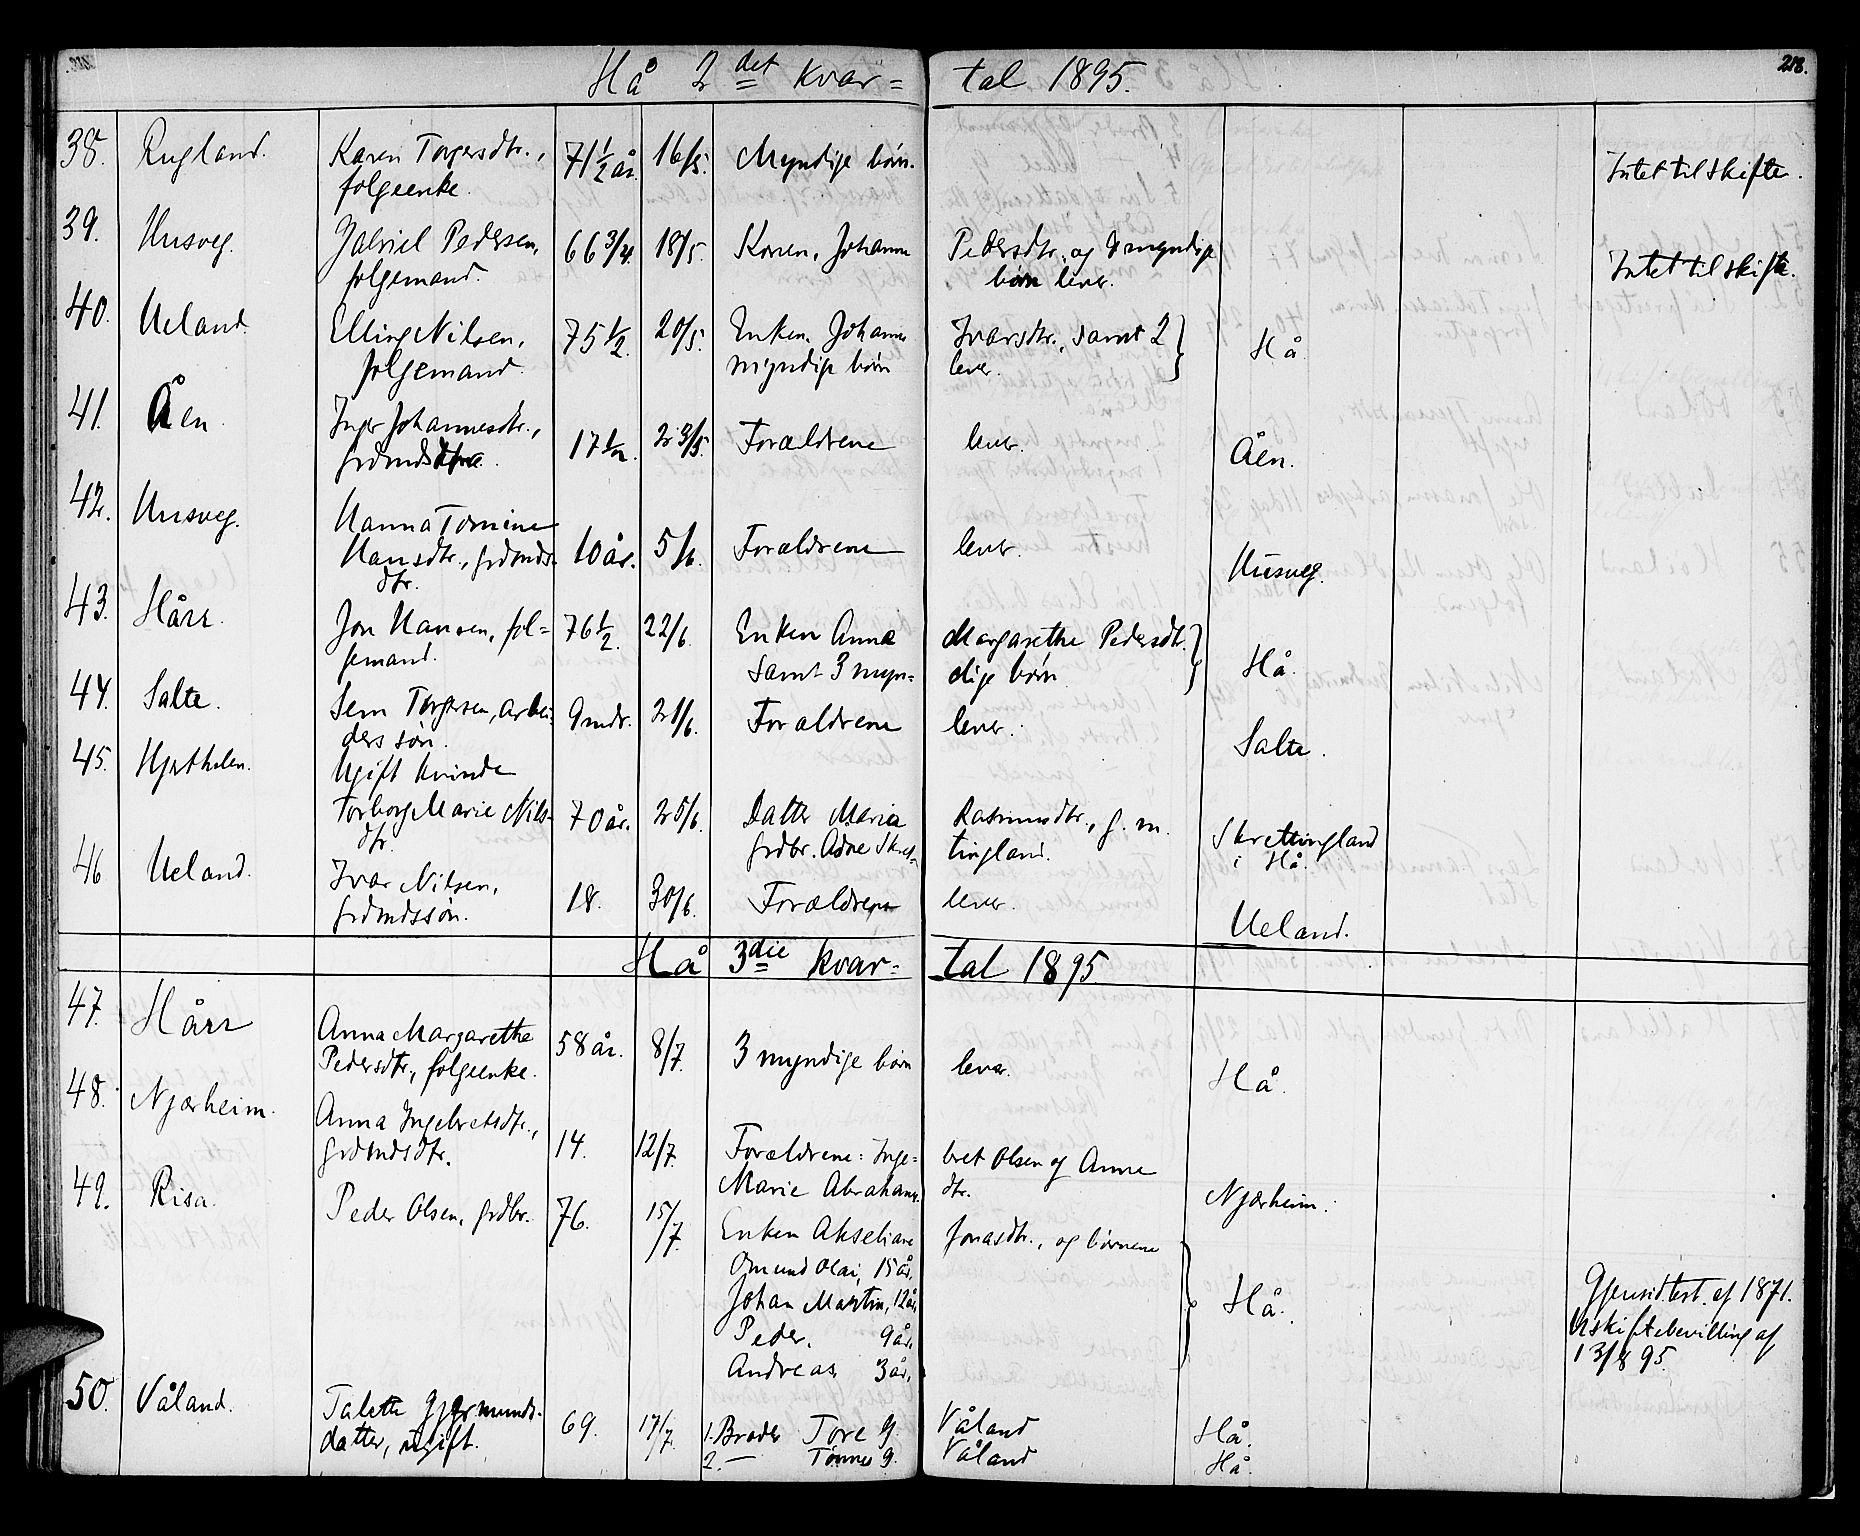 Hå 2det kvar= tal 1895. 218.
38. Rugland. Karen Torgersdtr., 71½ år. 16/5. Myndige børn. Intet til skifte.
folgeenke.
39. Husveg. Gabriel Pedersen, 66 3/4. 18/5. Konen, Johanne Pedersdtr. og 8 myndige Intet til skifte.
folgemand. børn lever.
40. Ueland. Elling Nilsen, 75 ½. 20/5. Enken, Johanne Ivarsdtr., samt 2 Hå.
folgemand. myndige børn lever.
41. Åen Inger Johannesdtr., 17 ½. 23/5. Forældrene lever. Åen.
grdmds
42. Husveg. Hanna Tomine
Hansdtr., grdmds. 10 år. 5/6. Forældrene lever. Husveg.
dtr.
43. Hårr. Jon Hansen, fol= 76 ½. 22/6. Enken Anna Margarethe Pedersdtr. Hå.
gemand. samt 3 myn= dige børn
44. Salte. Sem Torgersen, arbei- 9 mdr. 21/6. Forældrene lever. Salte.
ders søn.
45. Ugift kvinde
Torborg Marie Nils- 70 år. 25/6. Datter Maria Rasmusdtr., g. m. Skrettingland
dtr. grdbr. Adne Skret= tingland. i Hå.
46 Ueland. Ivar Nilsen, 18. 30/6. Forældrene lever. Ueland.
grdmdssøn.
Hå 3die kvar= tal 1895.
47. Hårr Anna Margarethe 58 år. 8/7. 3 myndige børn lever. Hå.
Pedersdtr., folgeenke.
48. Njærheim. Anna Ingebretsdtr., 14. 12/7. Forældrene: Inge= bret Olsen og Anne Njærheim.
grdmdsdtr. Marie Abrahams. dtr.
49. Risa. Peder Olsen, grdbr. 76. 15/7. Enken Akseliane Jonasdtr., og børnene Hå.
Omund Olai, 15 år,
Johan Martin, 12 år, Gjensid. test. af 1871.
Peder, 9 år, Uskiftebevilling af
Andreas 3 år, 13/8 95.
50. Våland. Talette Gjermunds- 69. 17/7. 1. Broder Tore G. Våland Hå.
datter, ugift. 2. — Tønnes G. Våland Hå.